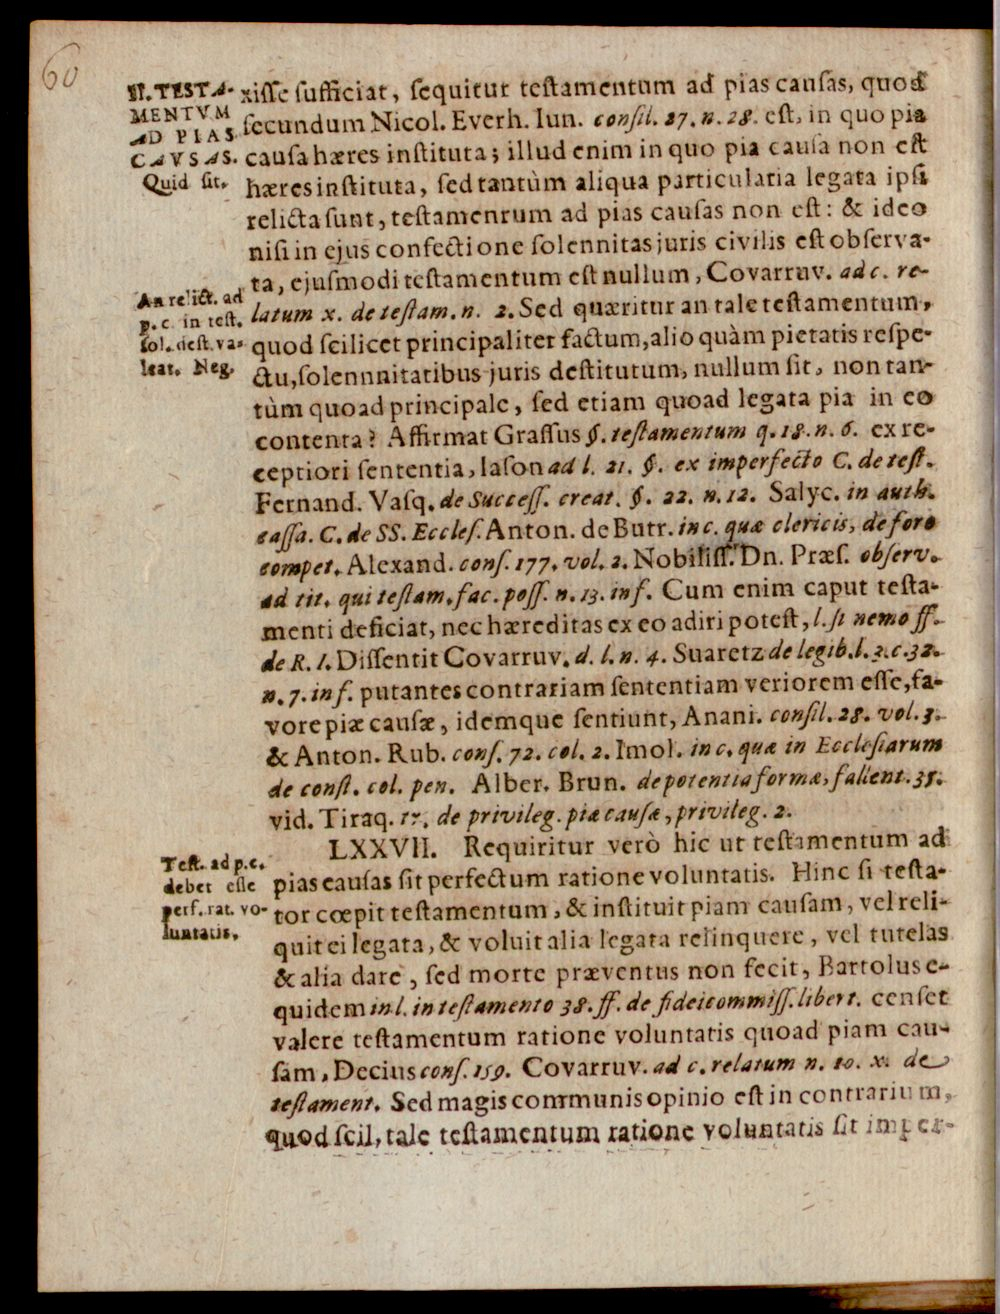 60
II. TESTA-
MENTVM
AD PIAS
CAVSAS.
Quid sit.
xisse sufficiat, sequitur testamentum ad pias causas, quod
secundum Nicol. Everh. Iun. consil. 27. n. 28. est, in quo pia
causa hæres instituta; illud enim in quo pia causa non est
hæres instituta, sed tantùm aliqua particularia legata ipsi
relicta sunt, testamenrum ad pias causas non est: & ideo
nisi in ejus confectione solennitas juris civilis est observa-
ta, ejusmodi testamentum est nullum, Covarruv. ad c. re-
An relict. ad
p. c. in test.
sol. dest. va-
leat. Neg.
latum x. de testam. n. 2. Sed quæritur an tale testamentum,
quod scilicet principaliter factum, alio quàm pietatis respe-
ctu, solennnitatibus juris destitutum, nullum sit, non tan-
tùm quoad principale, sed etiam quoad legata pia in eo
contenta? Affirmat Grassus §. testamentum q. 18. n. 6. ex re-
ceptiori sententia, Iason ad l. 21. §. ex imperfecto C. de test.
Fernand. Vasq. de Success. creat. §. 22. n. 12. Salyc. in auth.
cassa. C. de SS. Eccles. Anton. de Butr. in c. quæ clericis, de foro
compet. Alexand. cons. 177. vol. 2. Nobiliss. Dn. Præs. observ.
ad tit. qui testam. fac. poss. n. 13. inf. Cum enim caput testa-
menti deficiat, nec hæreditas ex eo adiri potest, l. si nemo ff.
de R. I. Dissentit Covarruv. d. l. n. 4. Suaretz de legib. l. 3. c. 32.
n. 7. inf. putantes contrariam sententiam veriorem esse, fa-
vore piæ causæ, idemque sentiunt, Anani. consil. 28. vol. 3.
& Anton. Rub. cons. 72. col. 2. Imol. in c. quæ in Ecclesiarum
de const. col. pen. Alber. Brun. de potentia formæ, falient. 35.
vid. Tiraq. tr. de privileg. piæ causæ, privileg. 2.
Test. ad p. c.
debet esse
perf. rat. vo-
luntatis.
LXXVII. Requiritur verò hic ut testamentum ad
pias causas sit perfectum ratione voluntatis. Hinc si testa-
tor cœpit testamentum, & instituit piam causam, vel reli-
quit ei legata, & voluit alia legata relinquere, vel tutelas
& alia dare, sed morte præventus non fecit, Bartolus e-
quidem in l. in testamento 38. ff. de fideicommiss. libert. censet
valere testamentum ratione voluntatis quoad piam cau-
sam, Decius cons. 159. Covarruv. ad c. relatum n. 10. x. de
testament. Sed magis communis opinio est in contrarium,
quod scil, tale testamentum ratione voluntatis sit imper-